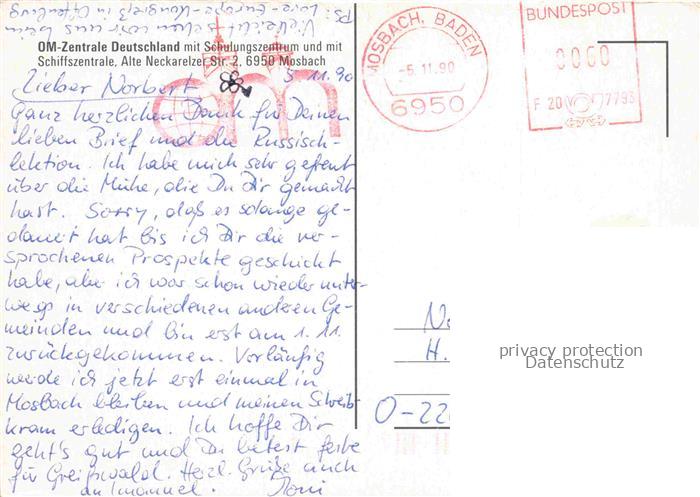 OM-Zentrale Deutschland mit Schulungszentrum und mit
Schiffszentrale, Alte Neckarelzer Str. 2, 6950 Mosbach
Lieber Norbert 3.11.90
Ganz herzlichen Dank für Deinen
lieben Brief und die Russisch-
lektion. Ich habe mich sehr gefreut
über die Mühe, die Du Dir gemacht
hast. Sorry, daß es solange ge-
dauert hat bis ich Dir die ver-
sprochenen Prospekte geschickt
habe, aber ich war schon wieder unter-
wegs in verschiedenen anderen Ge-
meinden und bin erst am 1.11.
zurückgekommen. Vorläufig
werde ich jetzt erst einmal in
Mosbach bleiben und meinen Schreib-
kram erledigen. Ich hoffe Dir
geht's gut und Du betest feste
für Greifswald. Herzl. Grüße auch
an Imanuel. Toni
PS: Love-Europe-Kongreß in Offenburg
Vielleicht sehen wir uns beim
om
MOSBACH, BADEN
-5.11.90
6950
BUNDESPOST
0060
F 20 7793
H.
O-22
privacy protection
Datenschutz